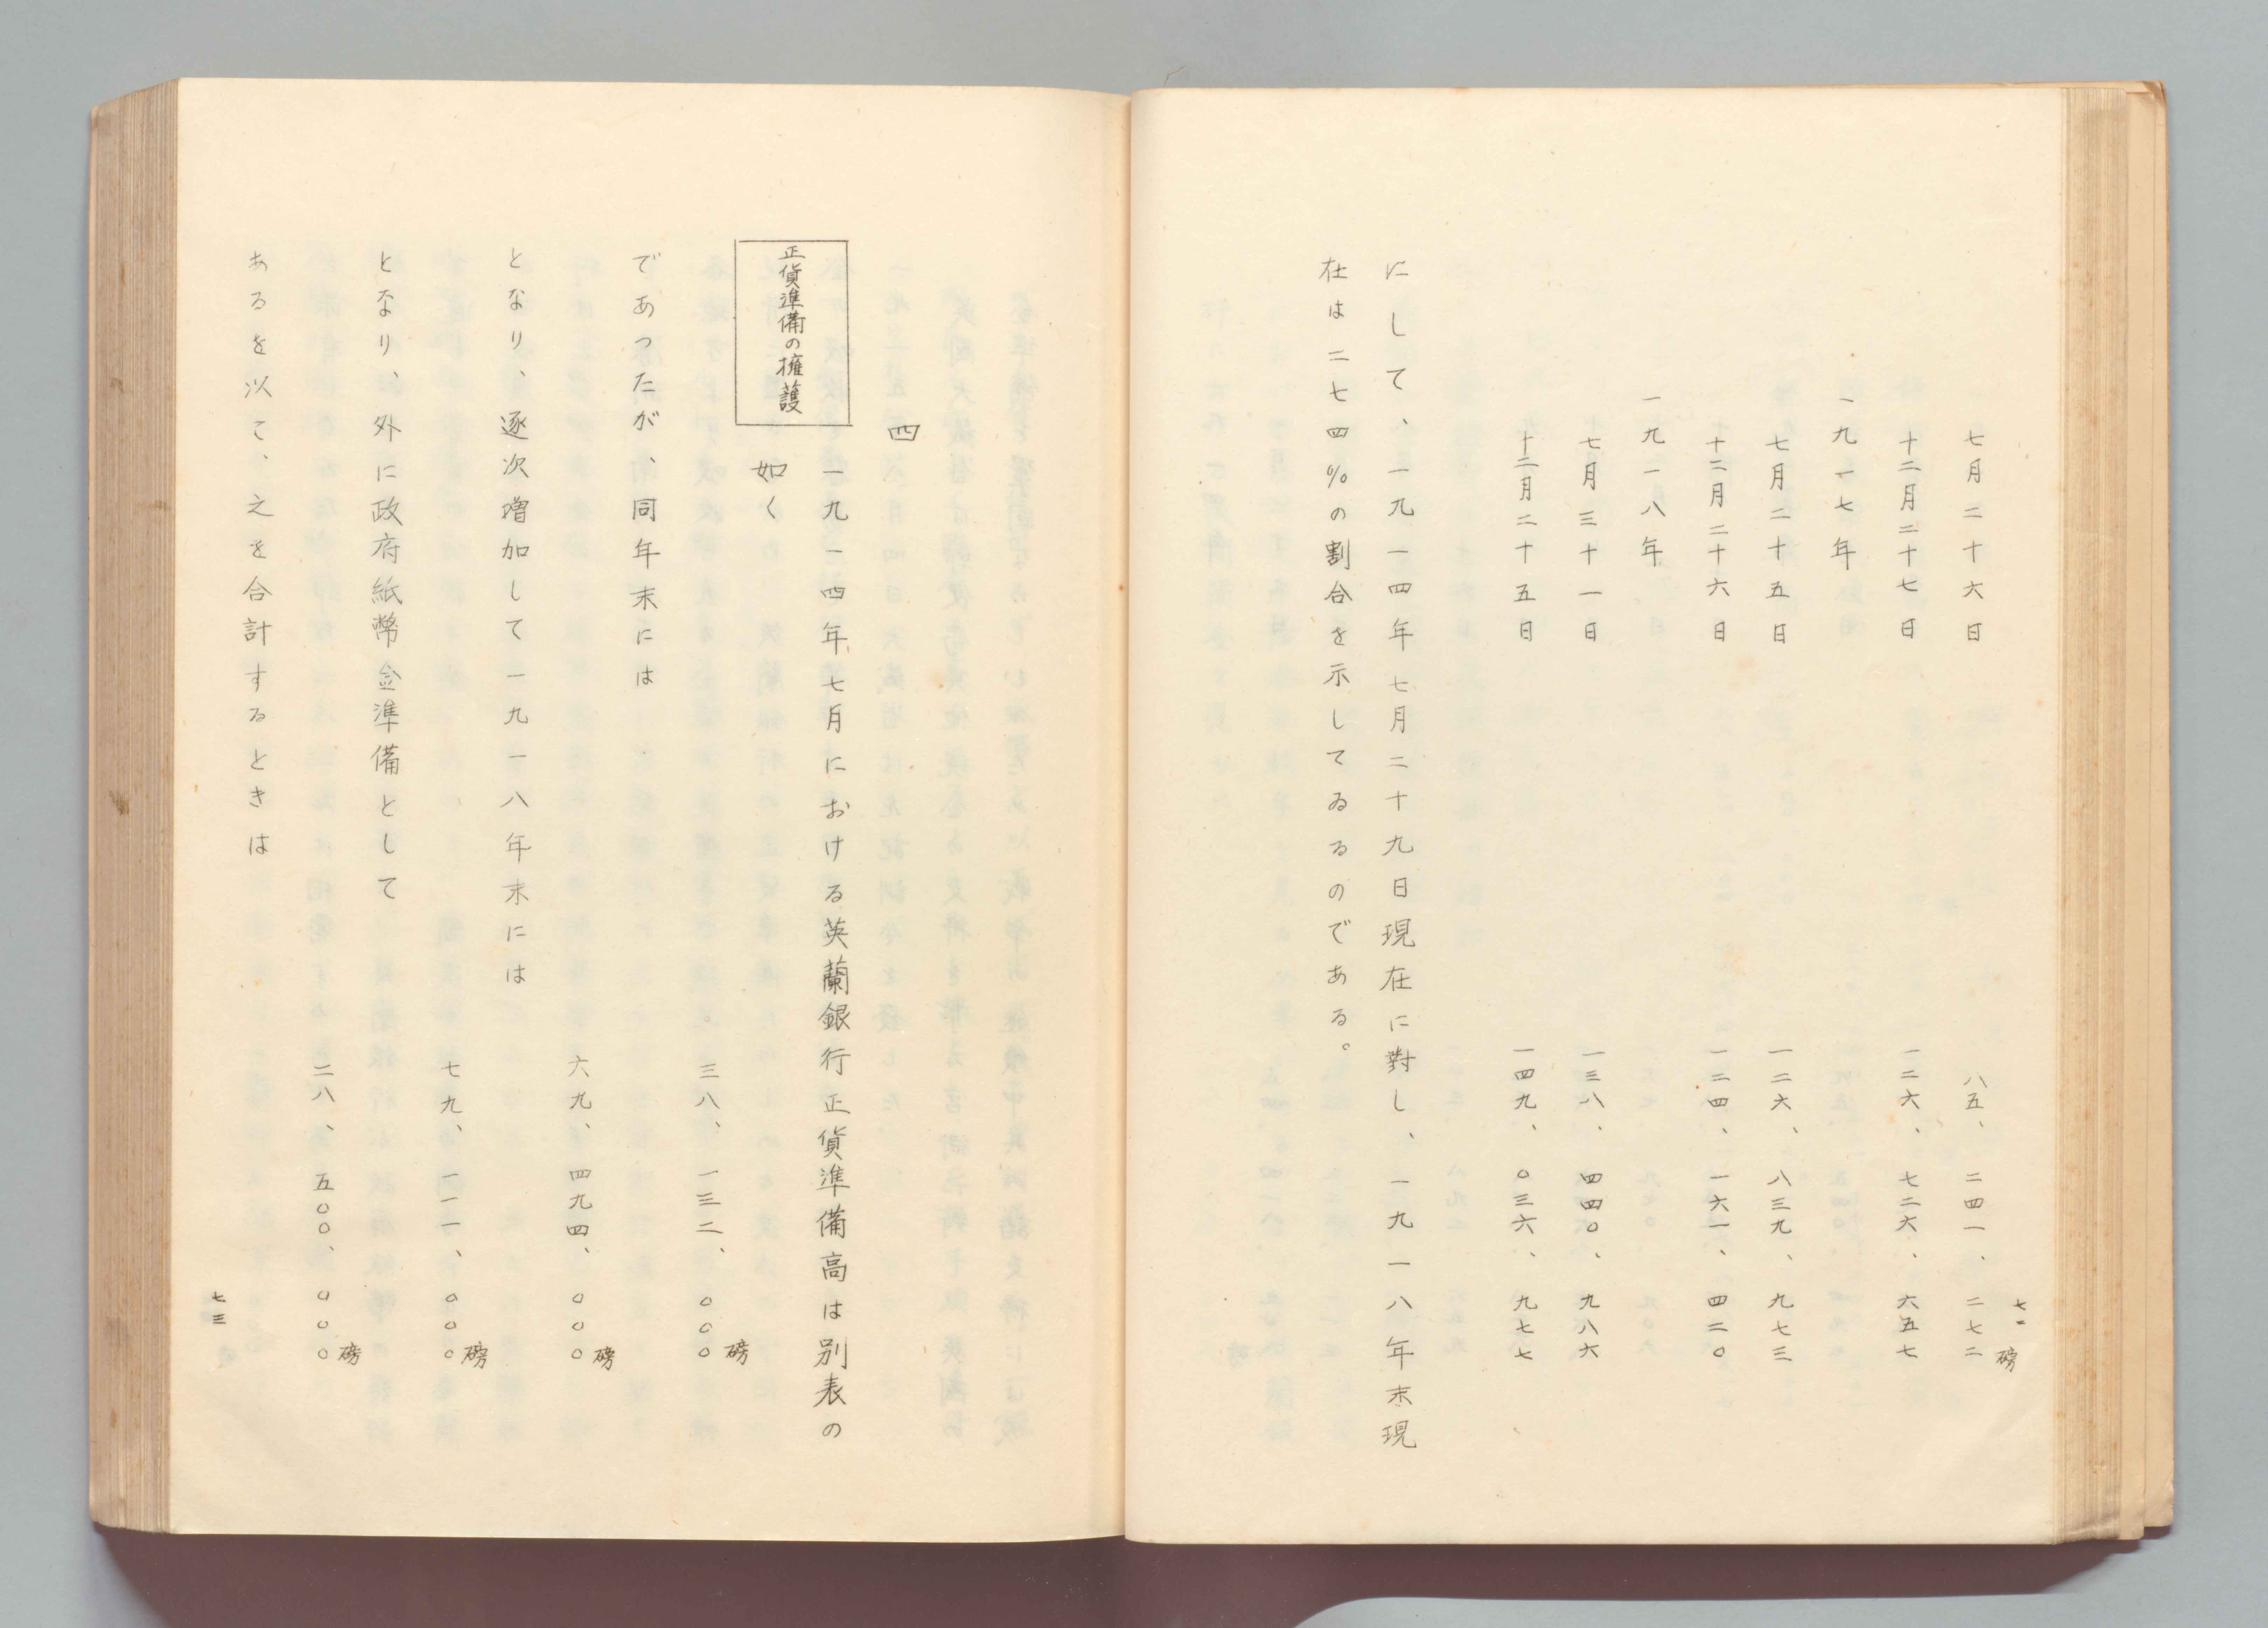 七二
七月二十六日 八五、二四一、二七二磅
十二月二十七日 一二六、七二六、六五七
一九一七年
七月二十五日 一二六、八三九、九七三
十二月二十六日 一二四、一六一、四二〇
一九一八年
七月三十一日 一三八、四四〇、九八六
十二月二十五日 一四九、〇三六、九七七
にして、一九一四年七月二十九日現在に對し、一九一八年末現
在は二七四％の割合を示してゐるのである。
四
正貨準備の擁護
一九一四年七月における英蘭銀行正貨準備高は別表の
如く
三八、一三二、〇〇〇磅
であつたが、同年末には
六九、四九四、〇〇〇磅
となり、逐次増加して一九一八年末には
七九、一一一、〇〇〇磅
となり、外に政府紙幣金準備として
二八、五〇〇、〇〇〇磅
あるを以て、之を合計するときは
七三